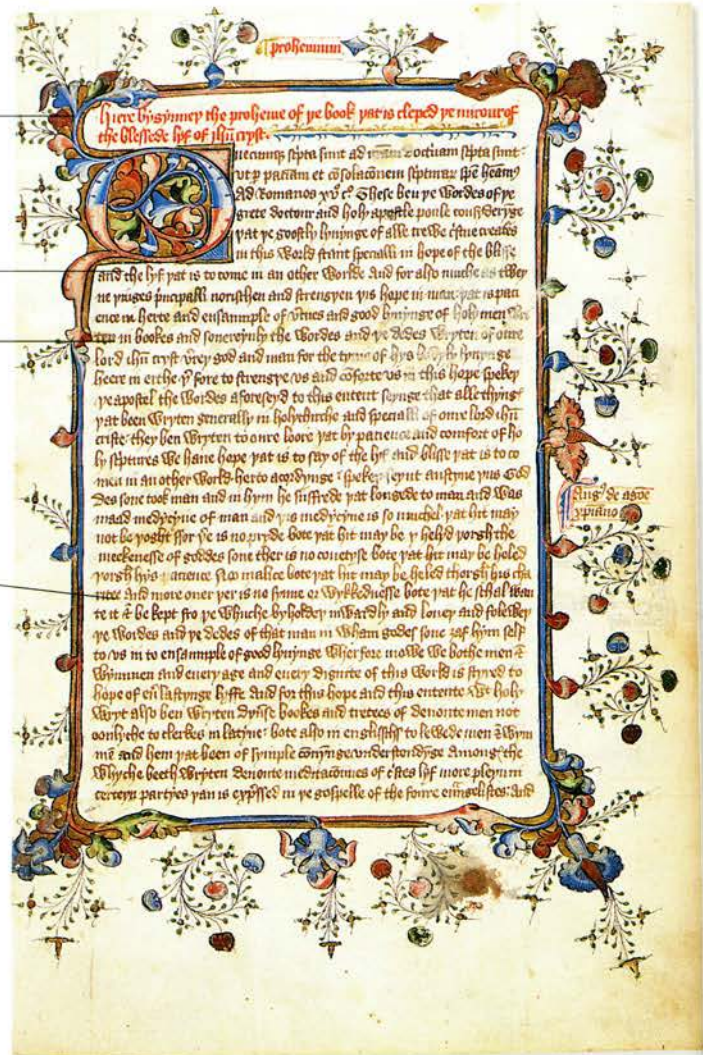 prohemium
Here bygynneþ the proheme of þe book þat is cleped þe mirour of
the blessede lyf of jhū cryst.
Quecumq; sc̄pta sunt ad nr̄am doct̄uam sc̄pta sunt
vt p̲ paciam et cōsolacōnem sc̄pturar̄ spē heam9
Ad Romanos xv c̊. These ben þe wordes of þe
grete doctour and holy apostle poule consideryge
þat þe goostly lyuynge of alle trewe c̄stne creat̄es
in this world stant specialli in hope of the blisse
and the lyf þat is to come in an other worlde And for also muche as twey
ne þinges p̄ncipalli norischen and strengþen þis hope in man: þat is paci
ence in herte and ensaumple of v̄tues and good lyuynge of holy men wri
ten in bookes and souereynly the wordes and þe dedes wryten of oure
lord jhū cryst verey god and man for the tyme of hys bodyly lyuynge
heere in erthe þ̄ fore to strengþe vs and cōforte vs in this hope spekeþ
þe apostel the wordes aforeseyd to this entent seynge that alle thynges
þat been wryten generally in holychirche and specialli of oure lord jhū
criste: they ben wryten to oure loore þat by pacience and comfort of ho
ly sc̄ptures we haue hope þat is to say of the lyf and blisse þat is to co
men in an other world. herto acordynge spekeþ seynt austyne þus God
des sone took man and in hym he suffrede þat longede to man and was
maad medycyne of man and þis medycyne is so muchel þat hit may
not be þoght ffor þ̄e is no pryde bote þat hit may be y helyd þorgh the
meekenesse of goddes sone ther is no couetyse bote þat hit may be heled
þorgh hys pouerte no malice bote þat hit may be heled thorgh his cha
ritee and more ouer þer is no synne or wykkednesse bote þat he schal wan
te it & be kept fro þe whuche byholdeþ inwardly and loueþ and foleweþ
þe wordes and þe dedes of that man in wham godes sone ȝaf hym self
to vs in to ensaumple of good lyuynge wherfore nowe we bothe men &
wymmen and euery age and euery dignite of this world is styred to
hope of eūlastynge lyffe And for this hope and this entente wt holy
wryt also ben wryten dyūse bookes and tretees of deuoute men not
oonlyche to clerkes in latyne: bote also in englissh to lewede men & wym
mē and hem þat been of symple conynge vnderstondyge Among the
whyche beeth wryten deuoute meditacouns of c̄stes lyf more pleyn in
certeyn partyes þan is exp̄ssed in þe gospelle of the foure euāgelistes: and
Aug9 de agōe
xp̄iano